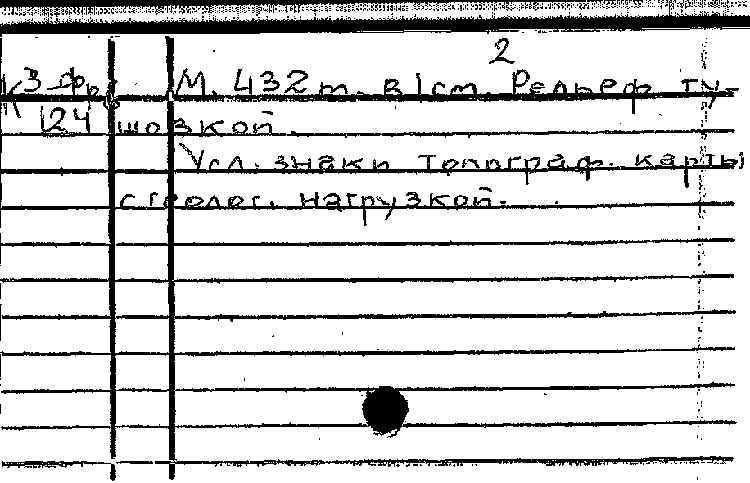 2
К3-Фр. М. 432 т. в 1 см. Рельеф ту-
124 шовкой.
Усл. знаки топограф. карты
с геолог. нагрузкой.